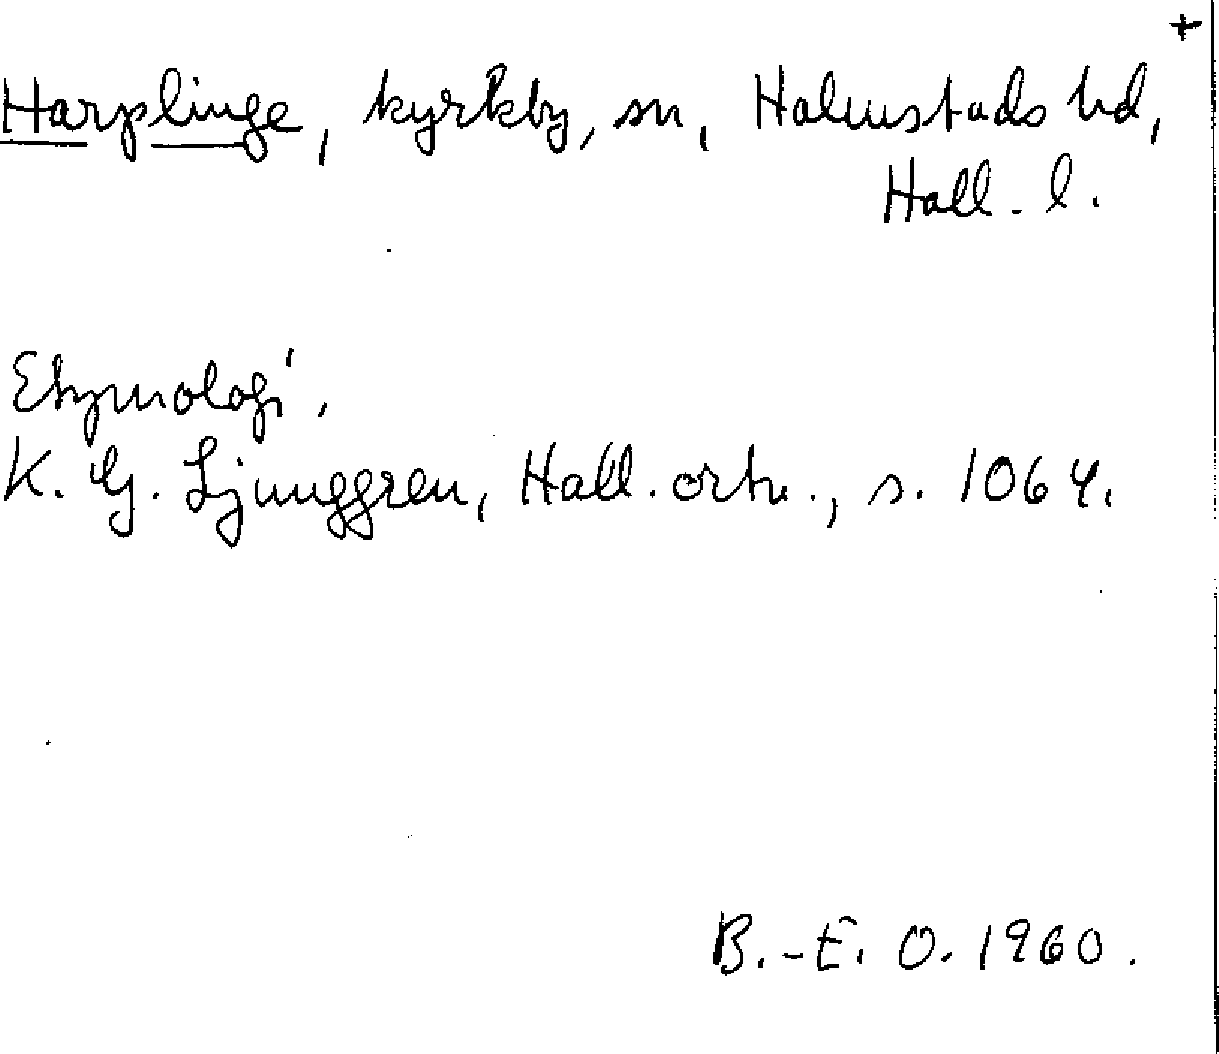 +
Harplinge, kyrkby, sn, Halmstads hd,
Hall. l.
Etymologi,
K. G. Ljunggren, Hall. ortn., s. 1064.
B.-E. O. 1960.